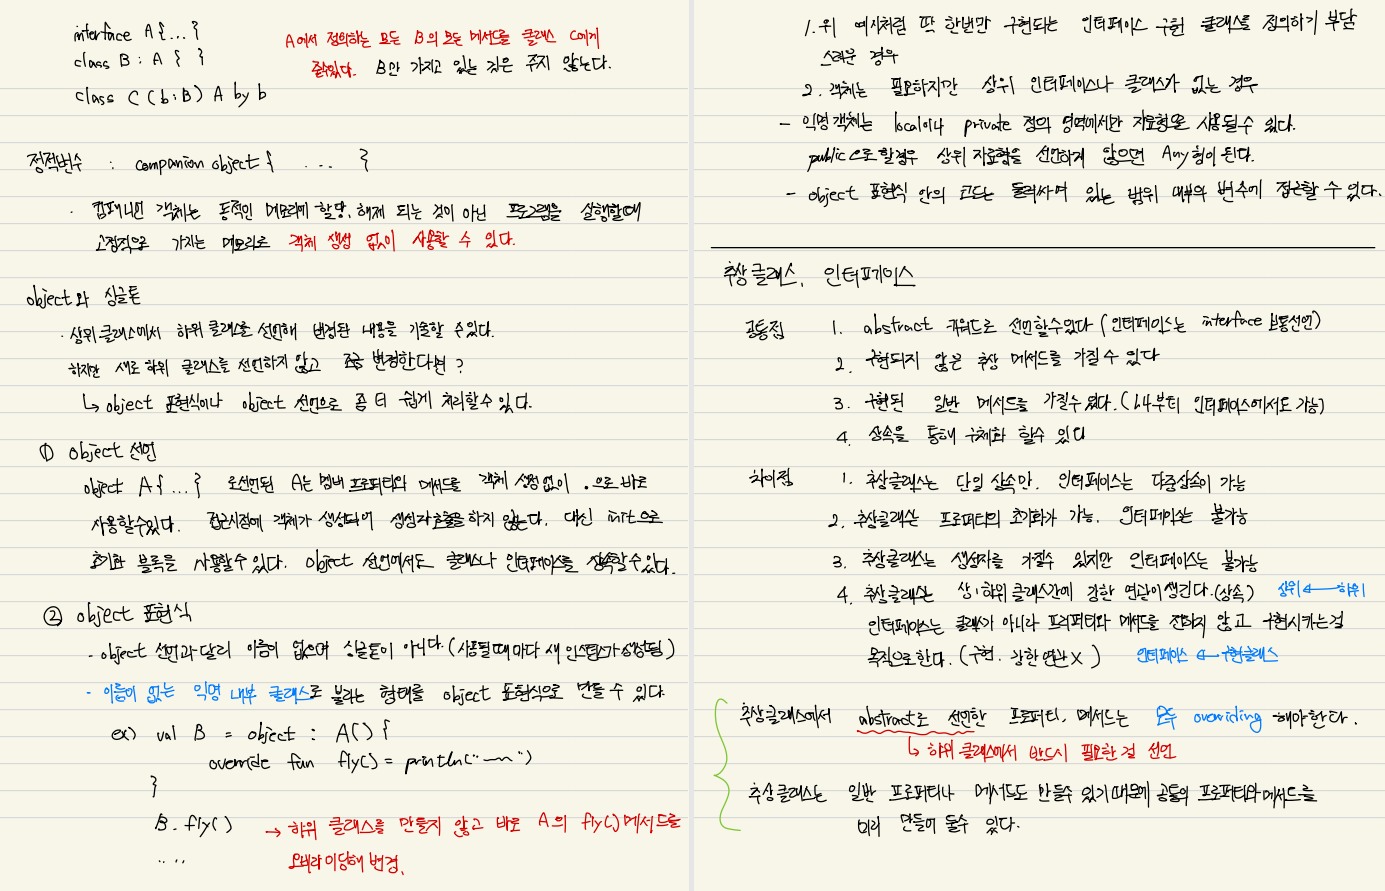 interface A{...}
class B : A { }
class C (b:B) A by b
A에서 정의하는 모든 B의 모든 메서드를 클래스 C에게
줄수있다. B만 가지고 있는 것은 주지 않는다.
정적변수 : companion object { ... }
· 컴패니언 객체는 동적인 메모리에 할당, 해제 되는 것이 아닌 프로그램을 실행할때
고정적으로 가지는 메모리로 객체 생성 없이 사용할 수 있다.
object와 싱글톤
· 상위 클래스에서 하위 클래스를 선언해 변경된 내용을 기술할 수있다.
하지만 새로 하위 클래스를 선언하지 않고 조금 변경한다면?
↳ object 표현식이나 object 선언으로 좀 더 쉽게 처리할수 있다.
① object 선언
object A {...} 로선언된 A는 멤버 프로퍼티와 메서드를 객체 생성없이 .으로 바로
사용할수있다. 접근시점에 객체가 생성되어 생성자호출을 하지 않는다. 대신 init으로
초기화 블록을 사용할수 있다. object 선언에서도 클래스나 인터페이스를 상속할수있다.
② object 표현식
- object 선언과 달리 이름이 없으며 싱글톤이 아니다. (사용될때마다 새 인스턴스가 생성됨)
- 이름이 없는 익명 내부 클래스로 불리는 형태를 object 표현식으로 만들 수 있다.
ex) val B = object : A() {
override fun fly() = println("~~")
}
B.fly() → 하위 클래스를 만들지 않고 바로 A의 fly()메서드를
오버라이딩해 변경.
....
1. 위 예시처럼 딱 한번만 구현되는 인터페이스 구현 클래스를 정의하기 부담
스러운 경우
2. 객체는 필요하지만 상위 인터페이스나 클래스가 없는 경우
- 익명 객체는 local이나 private 정의 영역에서만 자료형으로 사용될수 있다.
public으로 할경우 상위 자료형을 선언하게 않으면 Any형이 된다.
- object 표현식 안의 코드는 둘러싸여 있는 범위 내부의 변수에 접근할 수 있다.
추상클래스, 인터페이스
공통점 1. abstract 키워드로 선언할수있다 (인터페이스는 interface 보통선언)
2. 구현되지 않은 추상 메서드를 가질 수 있다
3. 구현된 일반 메서드를 가질수 있다. (1.4부터 인터페이스에서도 가능)
4. 상속을 통해 구체화 할수 있다
차이점 1. 추상클래스는 단일 상속만, 인터페이스는 다중상속이 가능
2. 추상클래스는 프로퍼티의 초기화가 가능, 인터페이스는 불가능
3. 추상클래스는 생성자를 가질수 있지만 인터페이스는 불가능
4. 추상클래스는 상·하위 클래스간에 강한 연관이 생긴다. (상속) 상위 ← 하위
인터페이스는 클래스가 아니라 프로퍼티와 메서드를 전하지 않고 구현시키는걸
목적으로한다. (구현. 강한 연관 X) 인터페이스 ← 구현클래스
추상클래스에서 abstract로 선언한 프로퍼티, 메서드는 모두 overriding 해야한다.
↳ 하위 클래스에서 반드시 필요한 걸 선언
추상클래스는 일반 프로퍼티나 메서드도 만들수 있기 때문에 공통의 프로퍼티와 메서드를
미리 만들어 둘수 있다.